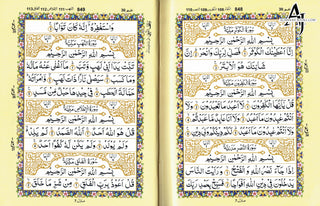 848
سُورَةُ الْكَوْثَرِ مَكِّيَّةٌ
بِسْمِ اللّٰهِ الرَّحْمٰنِ الرَّحِيْمِ
اِنَّاۤ اَعْطَيْنٰكَ الْكَوْثَرَ فَصَلِّ لِرَبِّكَ وَانْحَرْ اِنَّ
شَانِئَكَ هُوَ الْاَبْتَرُ
بِسْمِ اللّٰهِ الرَّحْمٰنِ الرَّحِيْمِ
قُلْ يٰۤاَيُّهَا الْكٰفِرُوْنَ لَاۤ اَعْبُدُ مَا تَعْبُدُوْنَ وَلَاۤ
اَنْتُمْ عٰبِدُوْنَ مَاۤ اَعْبُدُ وَلَاۤ اَنَا عَابِدٌ مَّا عَبَدْتُّمْ وَلَاۤ
اَنْتُمْ عٰبِدُوْنَ مَاۤ اَعْبُدُ لَكُمْ دِيْنُكُمْ وَلِيَ دِيْنِ
بِسْمِ اللّٰهِ الرَّحْمٰنِ الرَّحِيْمِ
اِذَا جَآءَ نَصْرُ اللّٰهِ وَالْفَتْحُ وَرَاَيْتَ النَّاسَ
يَدْخُلُوْنَ فِيْ دِيْنِ اللّٰهِ اَفْوَاجًا فَسَبِّحْ بِحَمْدِ رَبِّكَ
849
وَاسْتَغْفِرْهُ اِنَّهٗ كَانَ تَوَّابًا
بِسْمِ اللّٰهِ الرَّحْمٰنِ الرَّحِيْمِ
تَبَّتْ يَدَاۤ اَبِيْ لَهَبٍ وَّتَبَّ مَاۤ اَغْنٰى عَنْهُ مَالُهٗ
وَمَا كَسَبَ سَيَصْلٰى نَارًا ذَاتَ لَهَبٍ وَّامْرَاَتُهٗ
حَمَّالَةَ الْحَطَبِ فِيْ جِيْدِهَا حَبْلٌ مِّنْ مَّسَدٍ
بِسْمِ اللّٰهِ الرَّحْمٰنِ الرَّحِيْمِ
قُلْ هُوَ اللّٰهُ اَحَدٌ اَللّٰهُ الصَّمَدُ لَمْ يَلِدْ
وَلَمْ يُوْلَدْ وَلَمْ يَكُنْ لَّهٗ كُفُوًا اَحَدٌ
سُورَةُ الْفَلَقِ مَكِّيَّةٌ
بِسْمِ اللّٰهِ الرَّحْمٰنِ الرَّحِيْمِ
قُلْ اَعُوْذُ بِرَبِّ الْفَلَقِ مِنْ شَرِّ مَا خَلَقَ